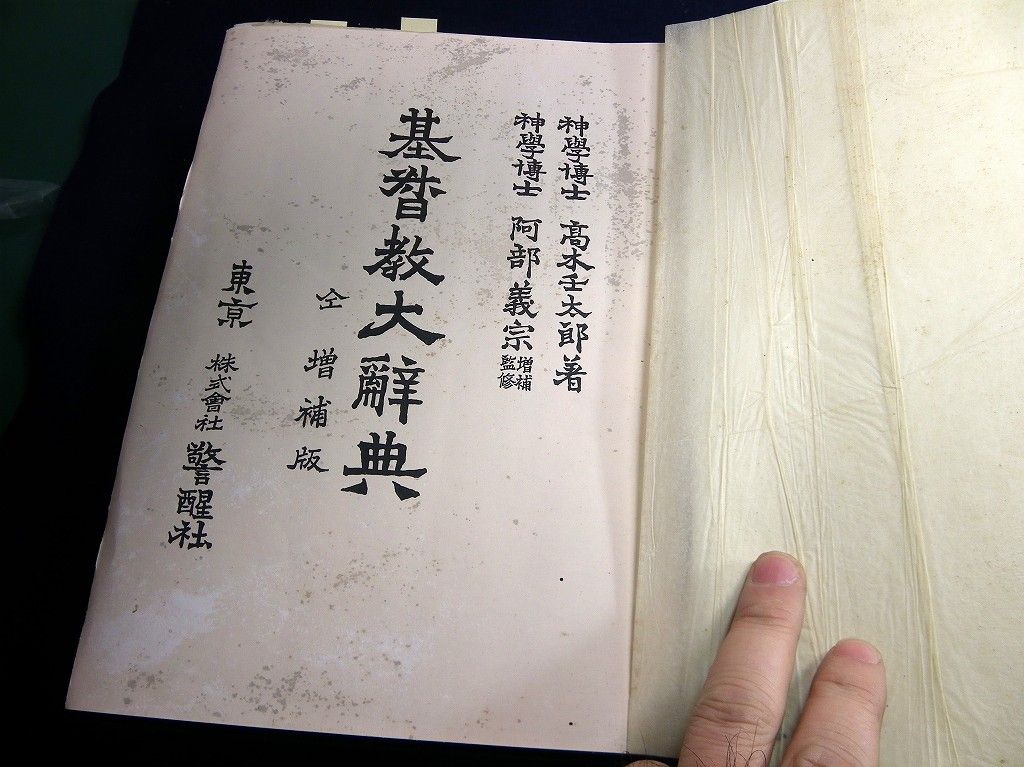 神學博士 高木壬太郎著
神學博士 阿部義宗 增補監修
基督教大辭典
仝 增補版
東京 株式會社 警醒社